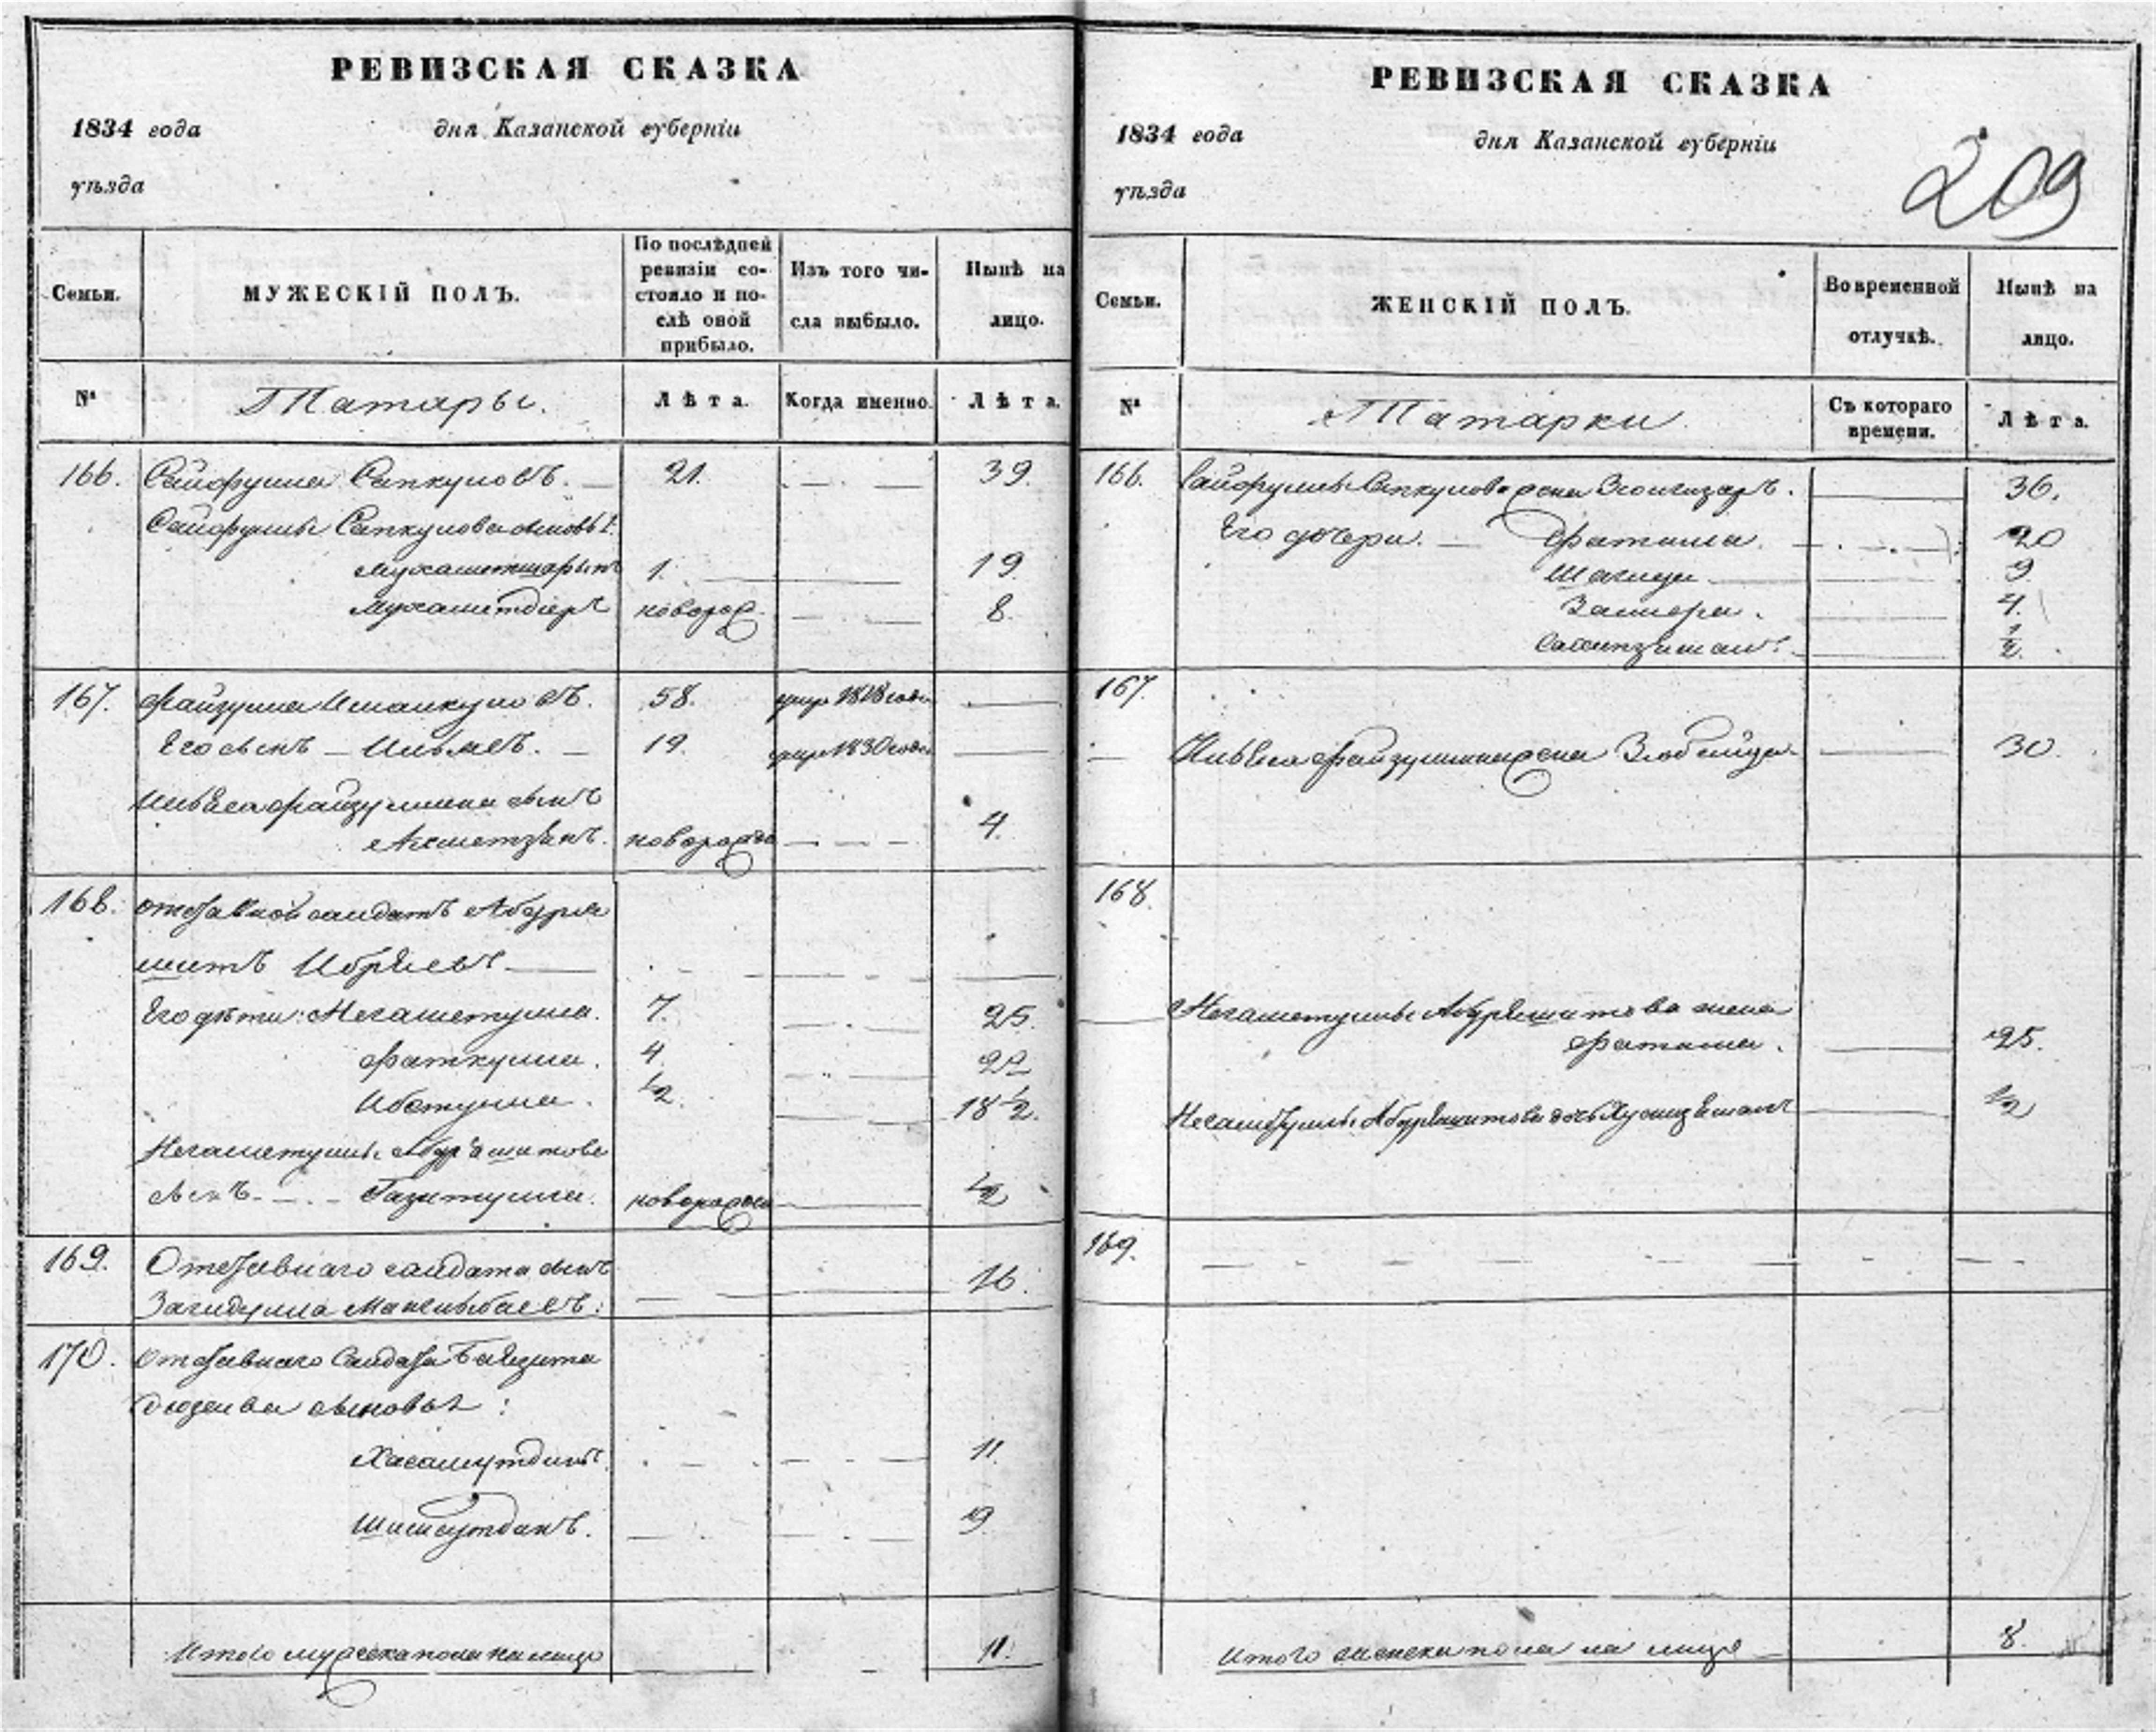 РЕВИЗСКАЯ СКАЗКА
1834 года дня Казанской губерніи
уѣзда
Семьи.
МУЖЕСКІЙ ПОЛЪ.
По послѣдней ревизіи состояло и послѣ оной прибыло.
Изъ того числа выбыло.
Нынѣ на лицо.
№
Татары.
Лѣта.
Когда именно.
Лѣта.
166. Сайфулла Сапкуловъ. 21. 39.
Сайфуллы Сапкулова сыновья:
Мухаметшарыпъ 1. 19.
новорож. 8.
167. Файзулла Иманкуловъ. 58. умре 1818 года
Его сынъ Ильясъ. 19. умре 1830 года
Ильяса Файзуллина сынъ
Ахметзянъ. 4.
168. отставной салдатъ Абдря
шитъ
Его дѣти: Негаметулла. 7. 25.
Фаткулла. 4. 22
Ибетулла. 1/2. 18 1/2.
Негаметуллы Абдряшитова
сынъ Газетулла. 1/2
169. Отставнаго салдата сынъ 16.
Загидулла
170. отставнаго салдата Баязита
сыновья:
11.
9
Итого мужеска пола на лицо 11.
РЕВИЗСКАЯ СКАЗКА
1834 года дня Казанской губерніи
уѣзда
209
Семьи.
ЖЕНСКІЙ ПОЛЪ.
Во временной отлучкѣ.
Нынѣ на лицо.
№
Татарки.
Съ котораго времени.
Лѣта.
166. Сайфуллы Сапкулова жена 36.
Его дочери. Фатима. 20
Шагида 9
4.
1/2.
167.
Ильяса Файзуллина жена 30.
168.
Негаметуллы Абдряшитова жена
Фатима. 25.
Негаметуллы Абдряшитова дочь 1/2
169.
Итого женска пола на лицо 8.